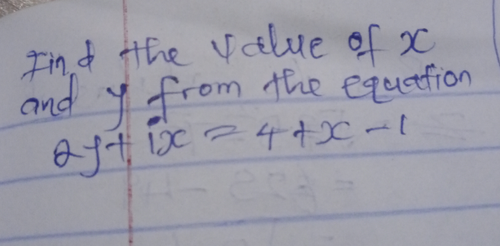 Find the value of x
and y from the equation
2y + ix = 4 + x - 1